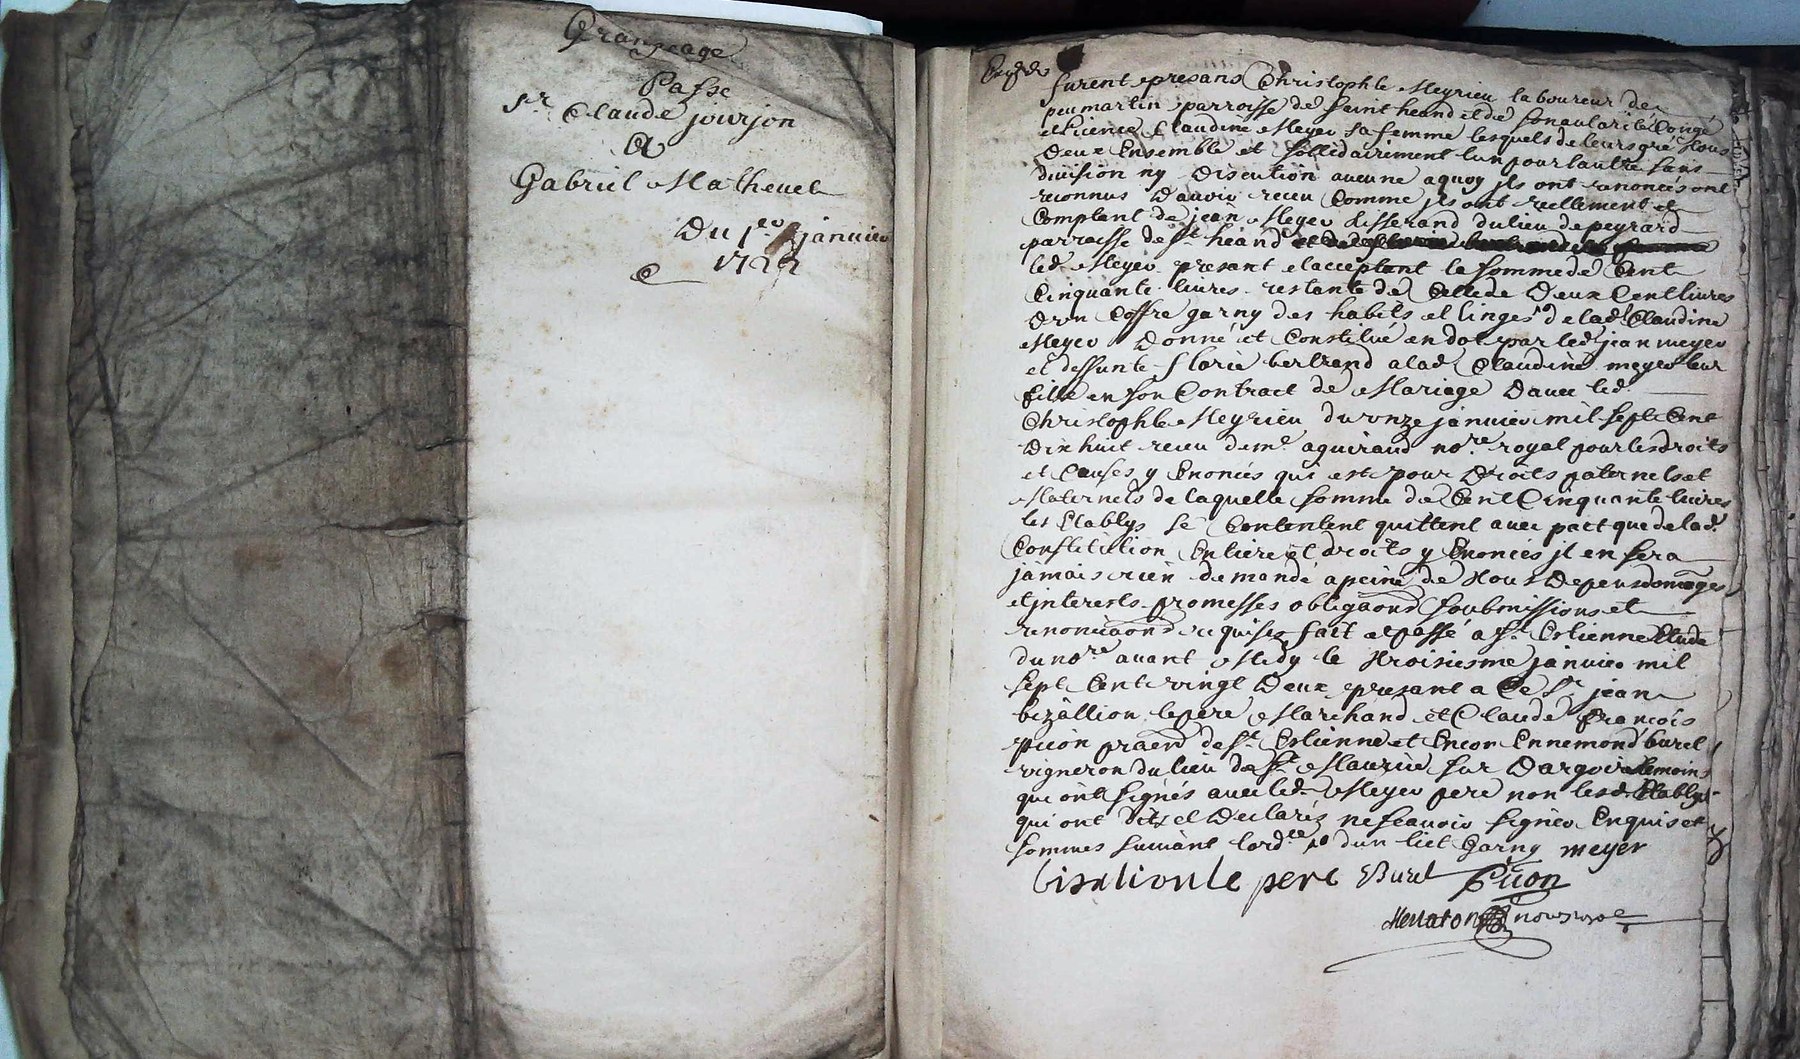 Grangeage
Passe
sr Claude jourjon
A
Gabriel Mathevet
Du 1er janvier
1722
furent presans Christophle Meyrieu laboureur de
peumartin parroisse de saint heand et de son autorité Congé
et licence Claudine Meyer sa femme lesquels de leurs gré tous
deux Ensemble et sollidairement lun pour lautre sans
division ny discution aucune a quoy jls ont renoncés ont
reconnus davoir receu Comme jls ont reellement et
Comptant de jean Meyer tisserand du lieu de peyrard
parroisse de st heand
led Meyer presant et acceptant la somme de Cent
Cinquante livres restante de Celle de Deux Cent livres
dun Coffre garny des habits et linges de lad Claudine
Meyer Donné et Constitué en dot par led jean meyer
et deffunte florie bertrand a lad Claudine meyer leur
fille en son Contract de Mariage Davec led
Christophle Meyrieu du onze janvier mil sept Cent
Dix huit receu de me aguiraud nore royal pour les droits
et Causes y Enoncés qui est pour Droits paternels et
Maternels de laquelle somme de Cent Cinquante livres
les Etablys se Contentent quittent avec pact que de lad
Constitution Entiere et droits y Enoncés jl en sera
jamais rien demandé a peine de tous Depens domages
et jnterests promesses obligaons soubmissions et
renonciaons requises fait et passé a st Estienne Etude
du nore avant Midy le troisiesme janvier mil
sept Cent vingt Deux presant a Ce sr jean
bizallion le pere Marchand et Claude françois
picon praen de st Estienne et Encor Ennemond burel
vigneron du lieu de st Maurice sur Dargoire temoins
qui ont signés avec led Meyer pere non lesd Etablys
qui ont Dits et Declarés ne scavoir signer Enquis et
sommes suivant lordce dun lict Garny meyer
bisalion le pere Burel Picon